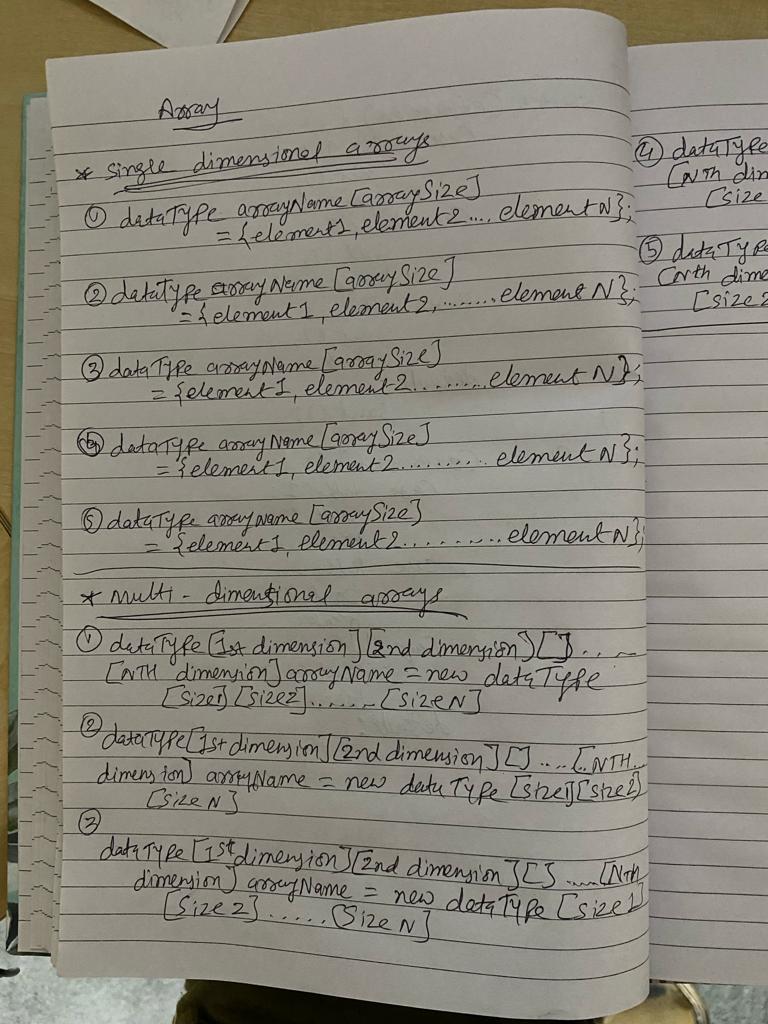 Array
* Single dimensional arrays
① dataType arrayName [arraySize]
= {element1, element2.... element N};
② dataType arrayName [arraySize]
= {element1, element2,........element N};
③ dataType arrayName [arraySize]
= {element1, element2.........element N};
④ dataType arrayName [arraySize]
= {element1, element2.......... element N};
⑤ dataType arrayName [arraySize]
= {element1, element2..........element N};
* Multi-dimensional arrays
① dataType [1st dimension][2nd dimension][]....
[NTH dimension] arrayName = new dataType
[Size1] [size2].......[sizeN]
② dataType[1st dimension][2nd dimension][]....[NTH...
dimension] arrayName = new dataType [size1][size2]
[Size N]
③
dataType [1st dimension][2nd dimension][].....[Nth
dimension] arrayName = new dataType [size1]
[Size2]......[Size N]
④ dataType
[NTh dim
[size
⑤ dataType
[Nth dime
[size 2